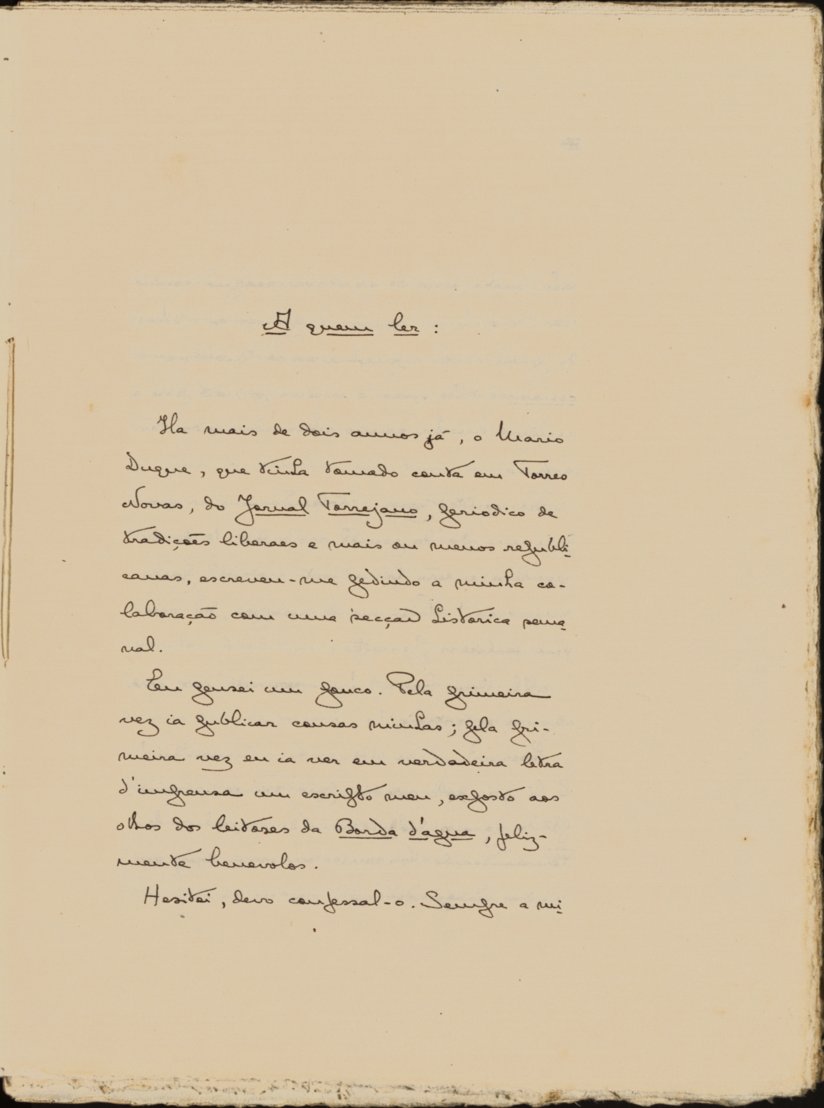 A quem ler:
Ha mais de dois annos já, o Mario
Duque, que tinha tomado conta em Torres
Novas, do Jornal Torrejano, periodico de
tradições liberaes e mais ou menos republi-
canas, escreveu-me pedindo a minha co-
laboração com uma secção historica sema-
nal.
Eu pensei um pouco. Pela primeira
vez ia publicar cousas minhas; pela pri-
meira vez eu ia ver em verdadeira letra
d'imprensa um escripto meu, exposto aos
olhos dos leitores da Borda d'agua, feliz-
mente benevolos.
Hesitei, devo confessal-o. Sempre a mi-